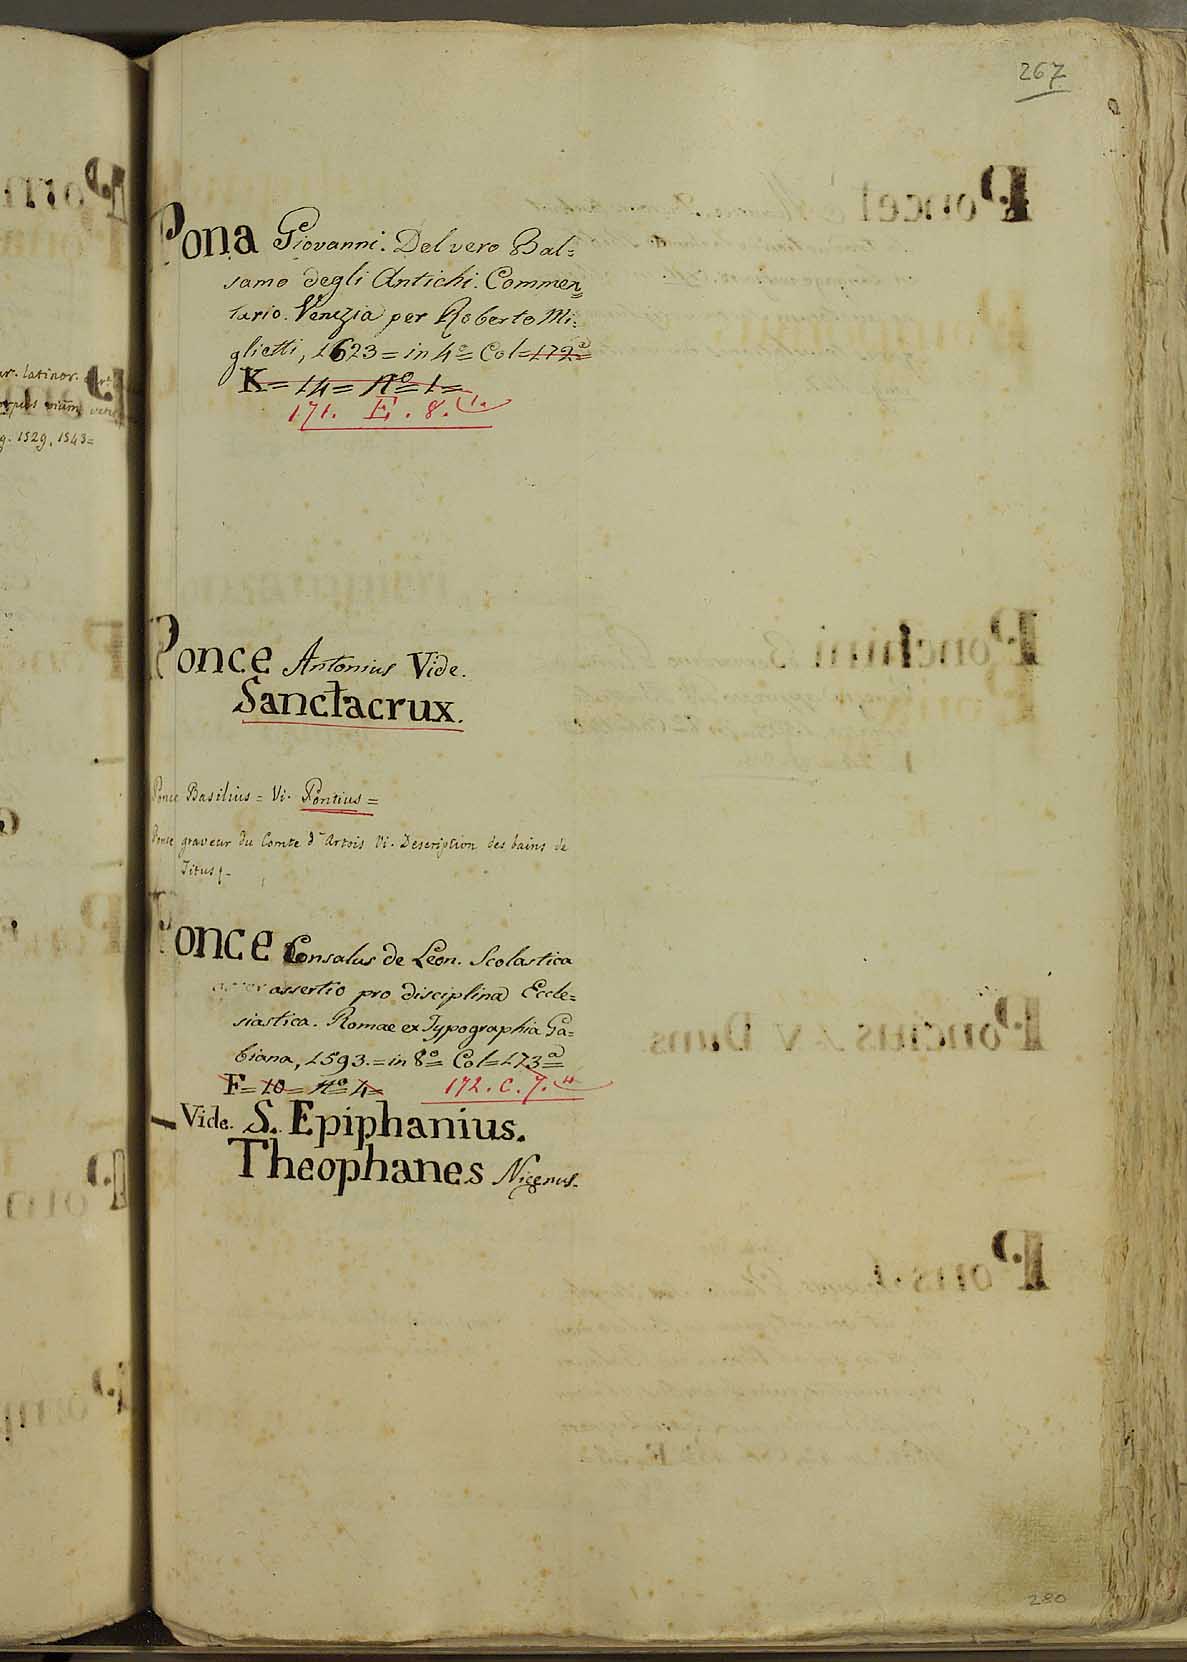 267
Pona Giovanni. Del vero Bal=
samo degli Antichi. Commen=
tario. Venezia per Roberto Mi=
glietti, 1623 = in 4º = Col = 172ª
K = 14 = Nº = 1 =
171. E. 8. 1.
Ponce Antonius Vide.
Sanctacrux.
Ponce Basilius = Vi. Pontius =
Ponce graveur du Comte d'Artois Vi. Description des bains de
Titus
Ponce Consalus de Leon. Scolastica
assertio pro disciplina Eccle=
siastica. Romae ex Typographia Ga=
biana, 1593. = in 8º = Col = 173ª
F = 10 = Nº 4 =
172. C. 7. 4
Vide. S. Epiphanius.
Theophanes Nicenus.
280
ar. latinor.
g. 1529, 1543 =